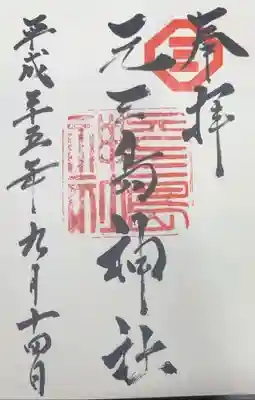 奉拝
元三島神社
平成廿五年九月十四日